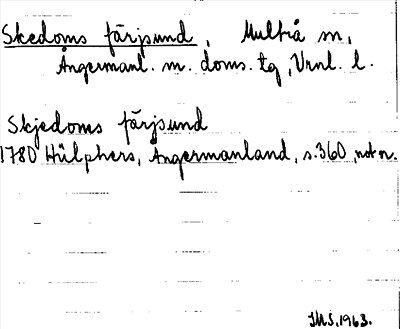 Skedoms färjsund, Multrå sn,
Ångermanl. m. doms. tg, Vrnl. l.
Skjedoms färjsund
1780 Hülphers, Ångermanland, s.360, not n.
1963.